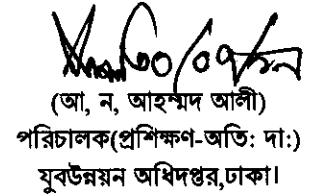 (আ, ন, আহম্মদ আলী)
পরিচালক(প্রশিক্ষণ-অতি: দা:)
যুবউন্নয়ন অধিদপ্তর,ঢাকা।